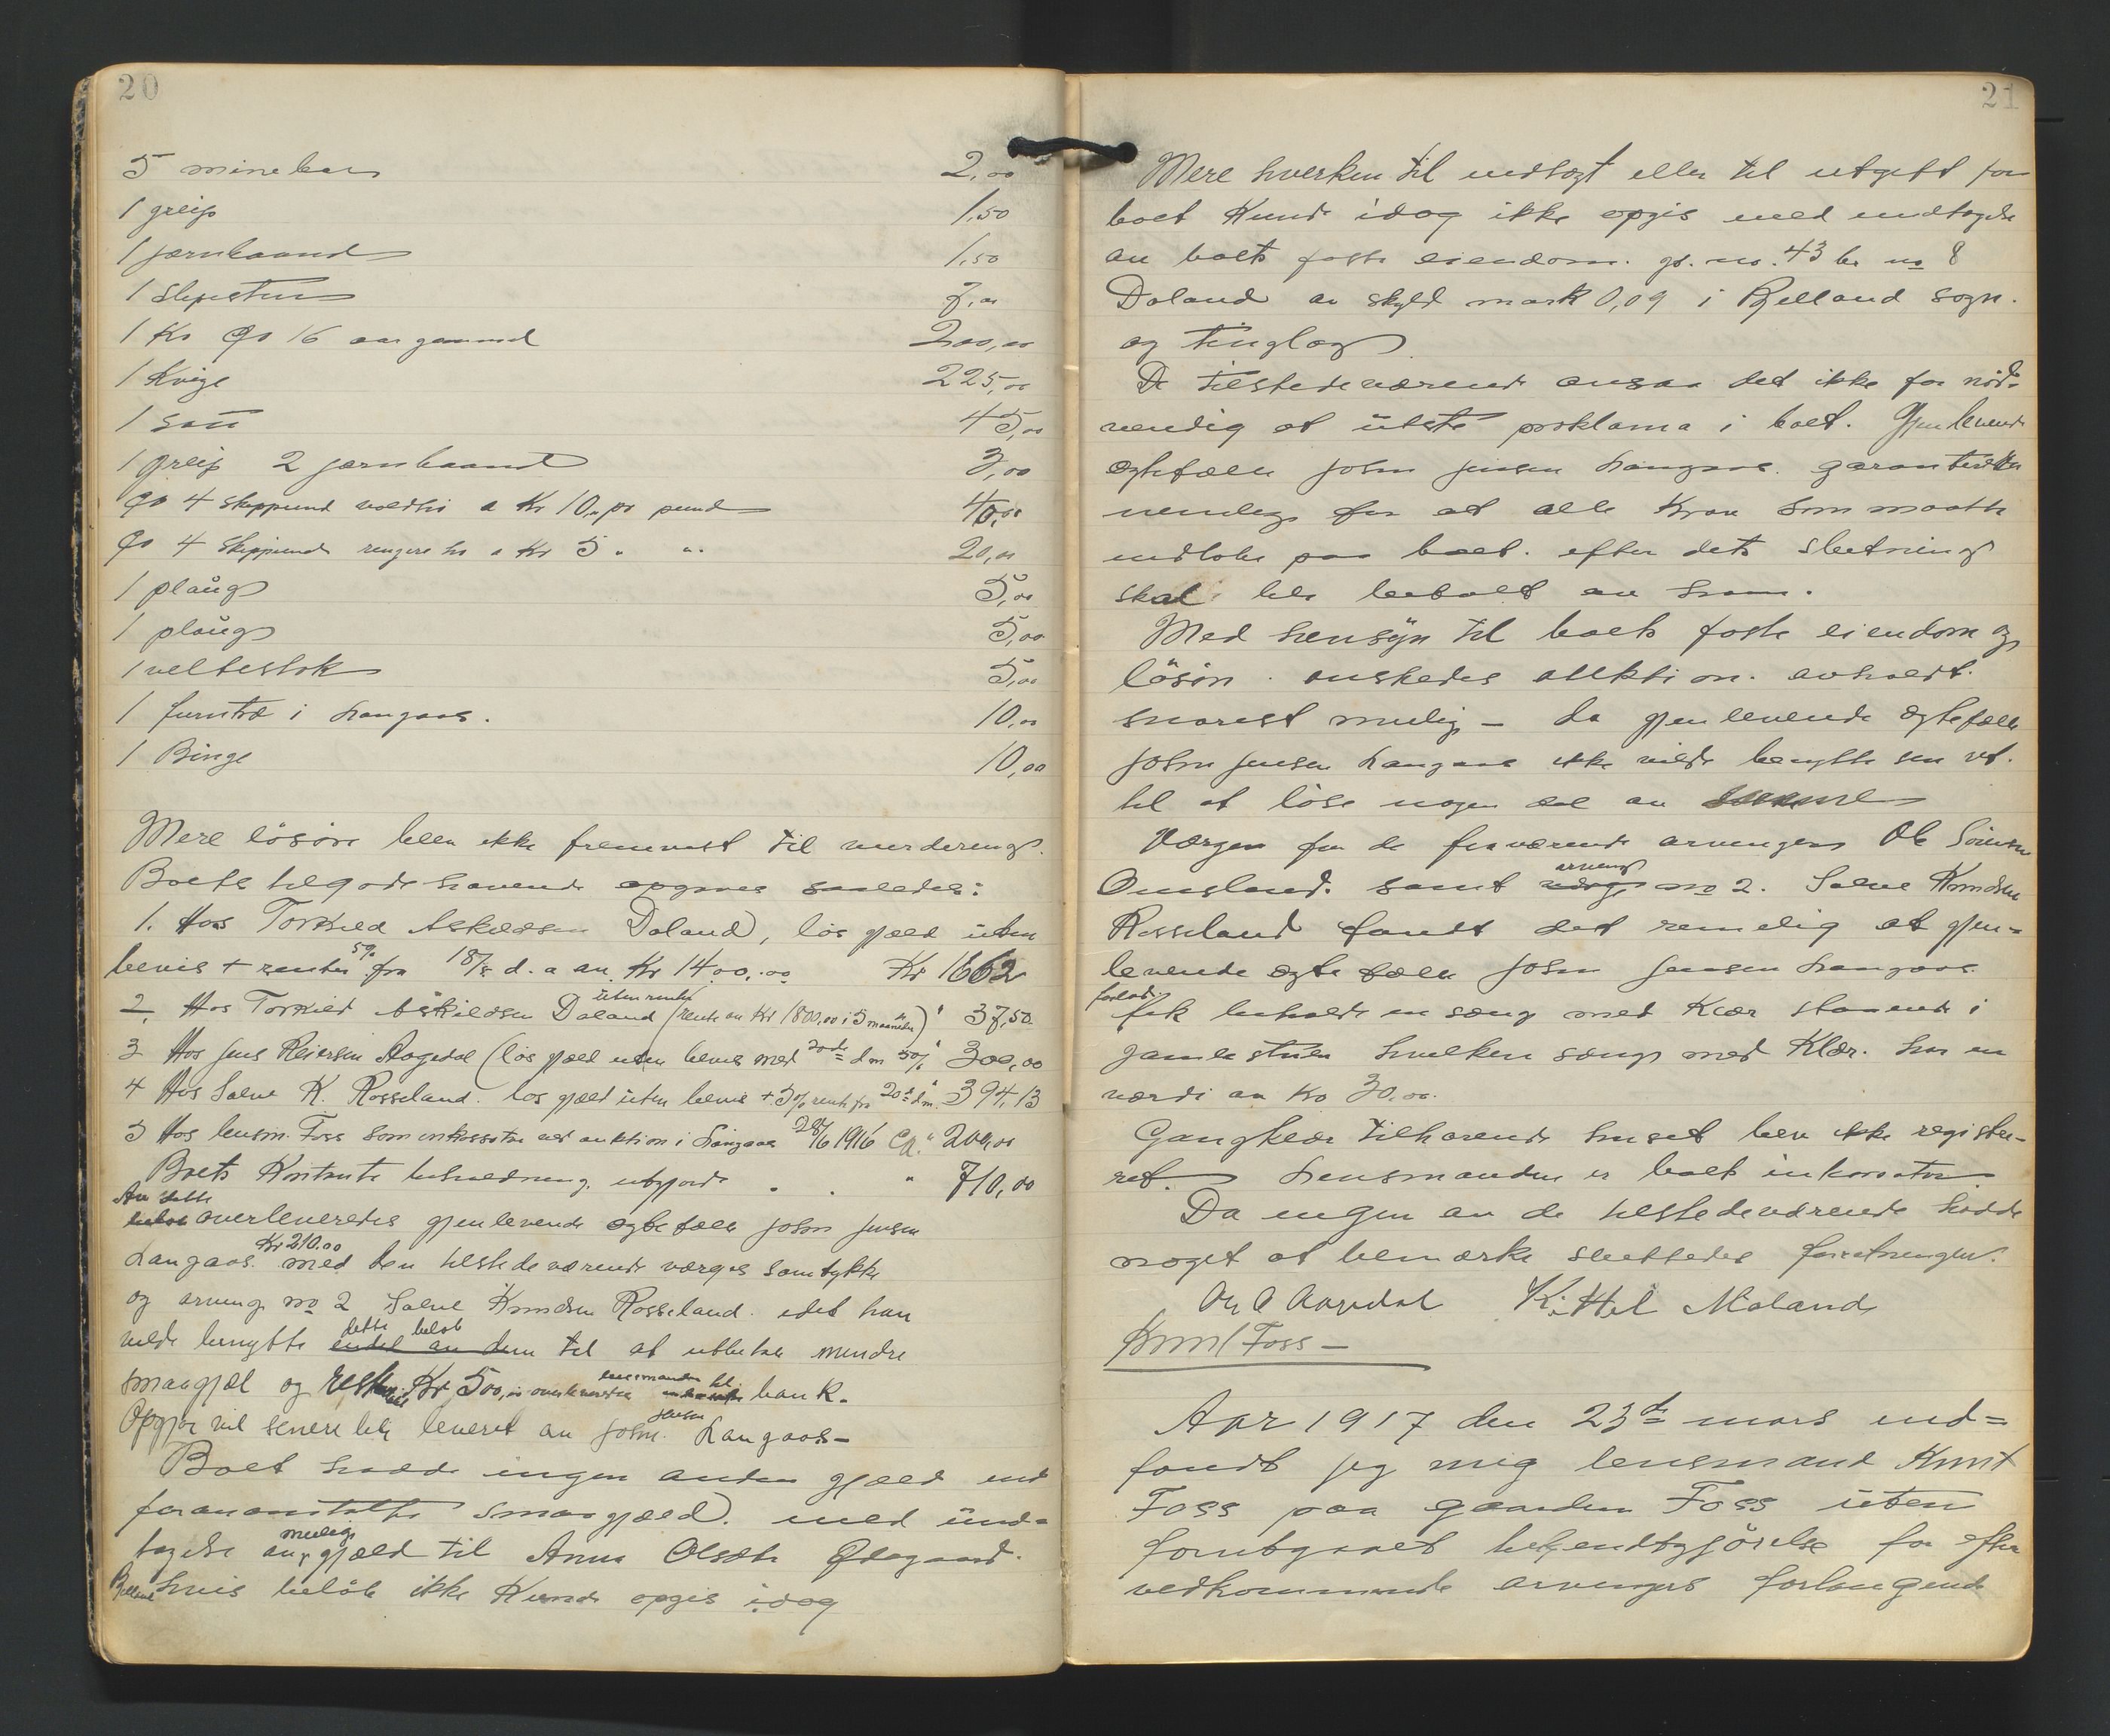 20
5 minebor 2,00
1 greip 1,50
1 jærnbaand 1,50
1 Slipesten 7,00
1 Ko ga 16 aar gammel 200,00
1 Kvige 225,00
1 sau 45,00
1 greip 2 jærnbaand 3,00
ga 4 skippund voldhøi a Kr 10,00 pr pund 40,00
ga 4 skippund ringere hø a Kr 5 " " 20,00
1 plaug 5,00
1 plaug 5,00
1 veltestok 5,00
1 furutræ i Langaas. 10,00
1 Binge 10,00
Mere løsøre blev ikke fremvist til vurdering.
Boets tilgodehavende opgaves saaledes:
1. Hos Torkild Askildsen Doland, løs gjæld uten
bevis + renter 5% fra 18/8 d. a av Kr 1400,00 Kr 1662
2. Hos Torkild Askildsen Doland uten renter (rente av Kr 1800,00 i 5 maaneder) " 37,50
3 Hos Jens Reiersen Aagedal (løs gjæld uten bevis med 20de d m 5%) " 300,00
4 Hos Salve K. Rosseland. løs gjæld uten bevis + 5% rente fra 20de d.m. " 394,13
5 Hos lensm. Foss som inkassator ved auktion i Langaas 28/6 1916 ca. " 200,00
Boets Kontante beholdning utgjorde . . " 710,00
Av dette
overleveredes gjenlevende egtefælle John Jensen
Langaas Kr 210.00 med den tilstedeværende værges samtykke
og arving no 2 Salve Knudsen Rosseland. idet han
vilde benytte endel av dem dette beløb til at utbetale mindre
smaagjæl og resten Kr 500,00 overleveredes lensmanden til bank.
Opgjør vil senere bli leveret av John Jensen Langaas –
Boet hadde ingen anden gjæld end
foranomtalte smaagjæld. med und-
tagelse av mulig gjæld til Anna Olsdtr Ødegaard.
Bjelland hvis beløb ikke Kunde opgis idag
21
Mere hverken til indtægt eller til utgift for
boet Kunde idag ikke opgis med undtagelse
av boets faste eiendom. gr. no. 43 br no 8
Doland av skyld mark 0,09 i Bjelland sogn.
og tinglag.
De tilstedeværende ansaa det ikke for nød-
vendig at utstede proklama i boet. Gjenlevende
egtefælle John Jensen Langaas. garanterte
nemlig for at alle Krav som maatte
indløbe paa boet. efter dets slutning
skal bli betalt av ham.
Med hensyn til boets faste eiendom og
løsøre. ønskedes auktion. avholdt.
snarest mulig – da gjenlevende egtefælle
John Jensen Langaas ikke vilde benytte sin ret.
til at løse nogen del av
Værgen for de fraværende arvinger Ole Sørensen
Omsland. samt arving no 2. Salve Knudsen
Rosseland fandt det rimelig at gjen-
levende egtefælle John Jensen Langaas
forlods fik beholde en sæng med Klær staaende i
gamlestuen hvilken sæng med Klær. har en
værdi av Kr 30,00.
Gangklær tilhørende huset blev ikke register-
ret. Lensmanden er boets inkassator
Da ingen av de tilstedeværende hadde
noget at bemærke sluttedes forretningen.
Ole A Aagedal Kittel Moland
Knut Foss –
Aar 1917 den 23de mars ind-
fandt jeg mig lensmand Knut
Foss paa gaarden Foss uten
forutgaaet bekjendtgjørelse for efter
vedkommende arvingers forlangende